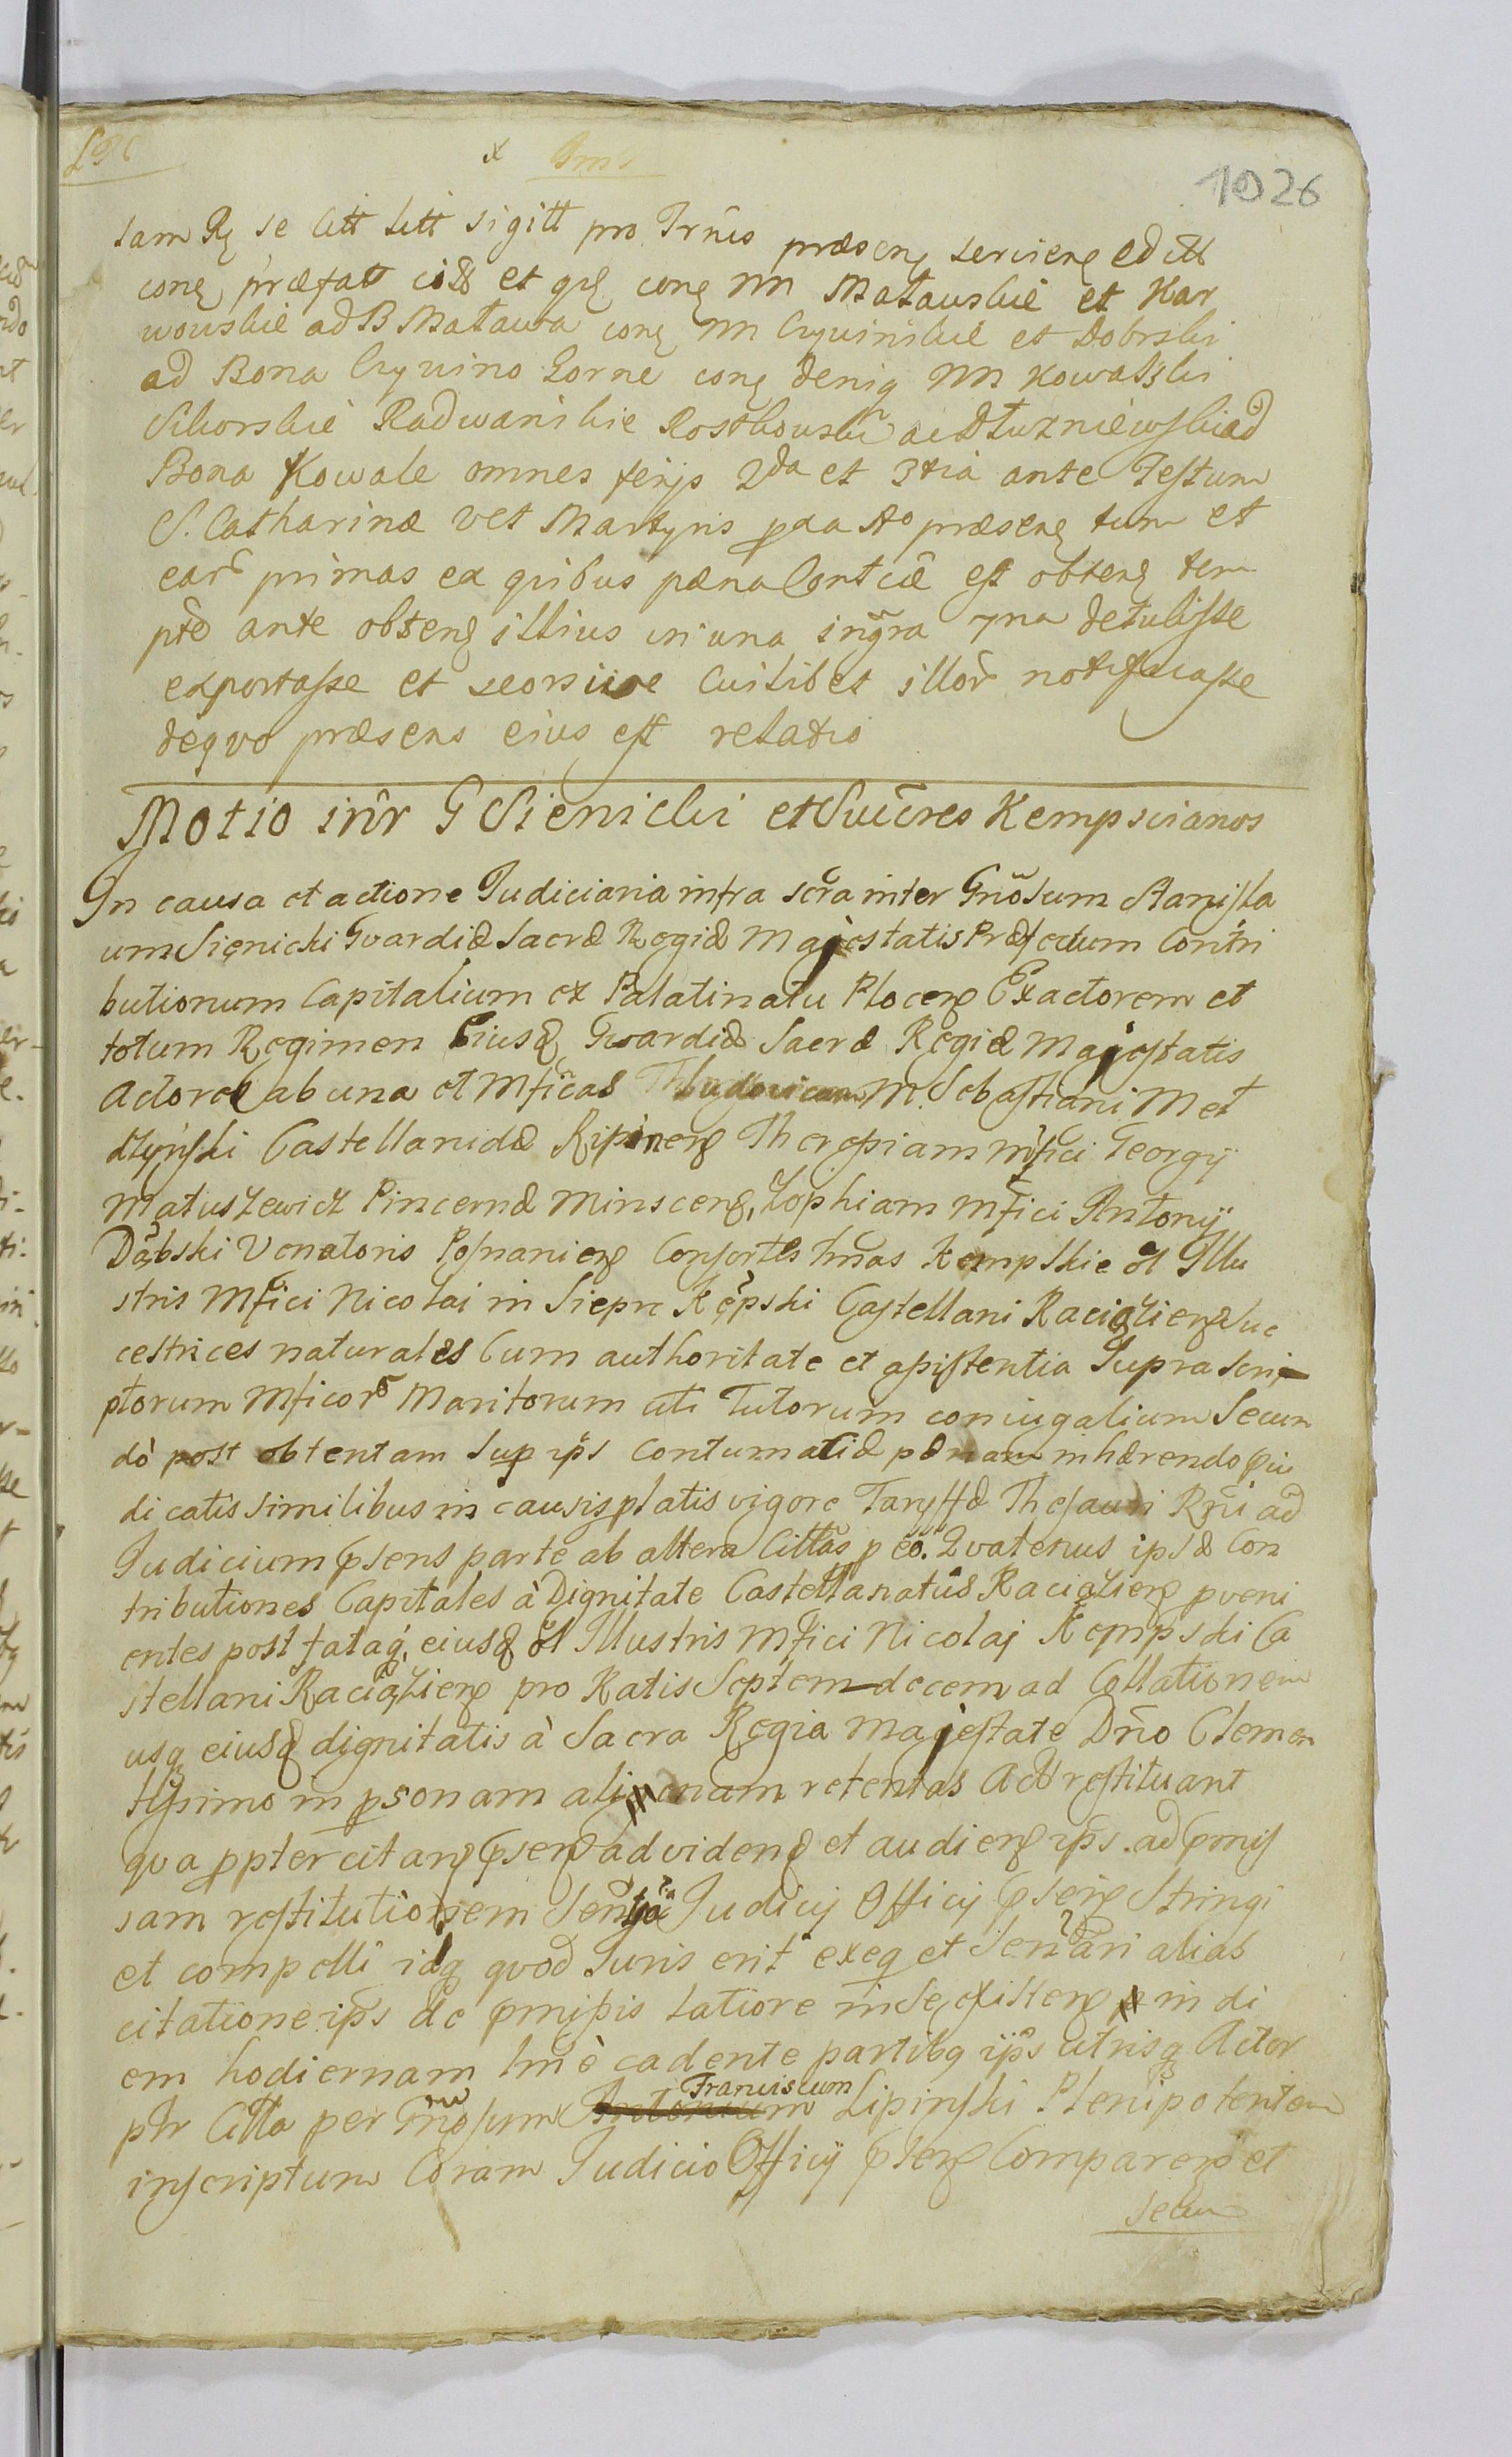 1026
sam Rς se litt litt sigitt pro Trnis præsenς serviens editt
conς præfatt et conς MM Matauskie et Kar
wouskie ad B Matawa conς MM Czywinskie et Dobrski
ad Bona Czywino Gorne conς deniq MM Kowalski
Sikorskie Radwanskie Rostkouski ac Dłuzniewski ad
Bona Kowale omnes ferijs 2da et 3tia ante Festum
S. Catharinæ V et Martyris Ao præsenς tum et
ear primas ex quibus pæna est obtenς
ante obtenς illius in una detulisse
exportasse et seorsive Cuilibet illor notificasse
deqvo præsens eius est relatio
Motio intr G Sienicki et Succres Kempscianos
In causa et actione Judiciaria infra scra inter Gnosum Stanisla
um Sienicki Gvardiæ Sacræ Regiæ Majestatis Præfectum Contri
butionum Capitalium ex Palatinatu Plocenς Exactorem et
totum Regimen Eiusd Gvardiæ Sacræ Regiæ Majestatis
Actores ab una et Mficas M. Sebastiani Met
dzynski Castellanidæ Ripinenς Theresiam Mfici Georgij
Matuszewicz Pincernæ Minscenς, Zophiam Mfici Antonij
Dąbski Venatoris Posnanienς Consortes Kempskie ol Illu
stris Mfici Nicolai in Siepre Kępski Castellani Raciązienς Suc
cestrices naturales Cum authoritate et assistentia Suprascri
ptorum Mficor Maritorum uti Tutorum coniugalium Secun
dò post obtentam Sup ips contumatiæ pænam inhærendo pju
dicatis similibus in causis platis vigore Taryffæ Thesauri Rni ad
Judicium psens parte ab altera Cittas p eo. Qvatenus ipsæ Con
tributiones Capitales à Dignitate Castellanatus Raciązienς pveni
entes post fata eiusd ol Illustris Mfici Nicolaj Kempski Ca
stellani Raciązienς pro Ratis Septemdecem ad Collationem
usq eiusd dignitatis à Sacra Regia Majestate Dno Clemen
tissimo in psonam alienam retentas Act restituant
qva ppter citanς psenς ad vidend et audienς ips. ad pmis
sam restitutionem Sentia Judicij Officij psenς Stringi
et compelli idq qvod Juris erit exeq et Sentari alias
citatione ips de pmissis latiore in Se existenς in di
em hodiernam cadente partibq ips utrisq Actor
Franciscum
ptr Citta per Gnosum Antonium Lipinski Plenipotentem
inscriptum Coram Judicio Officij psenς Comparenς et
secun